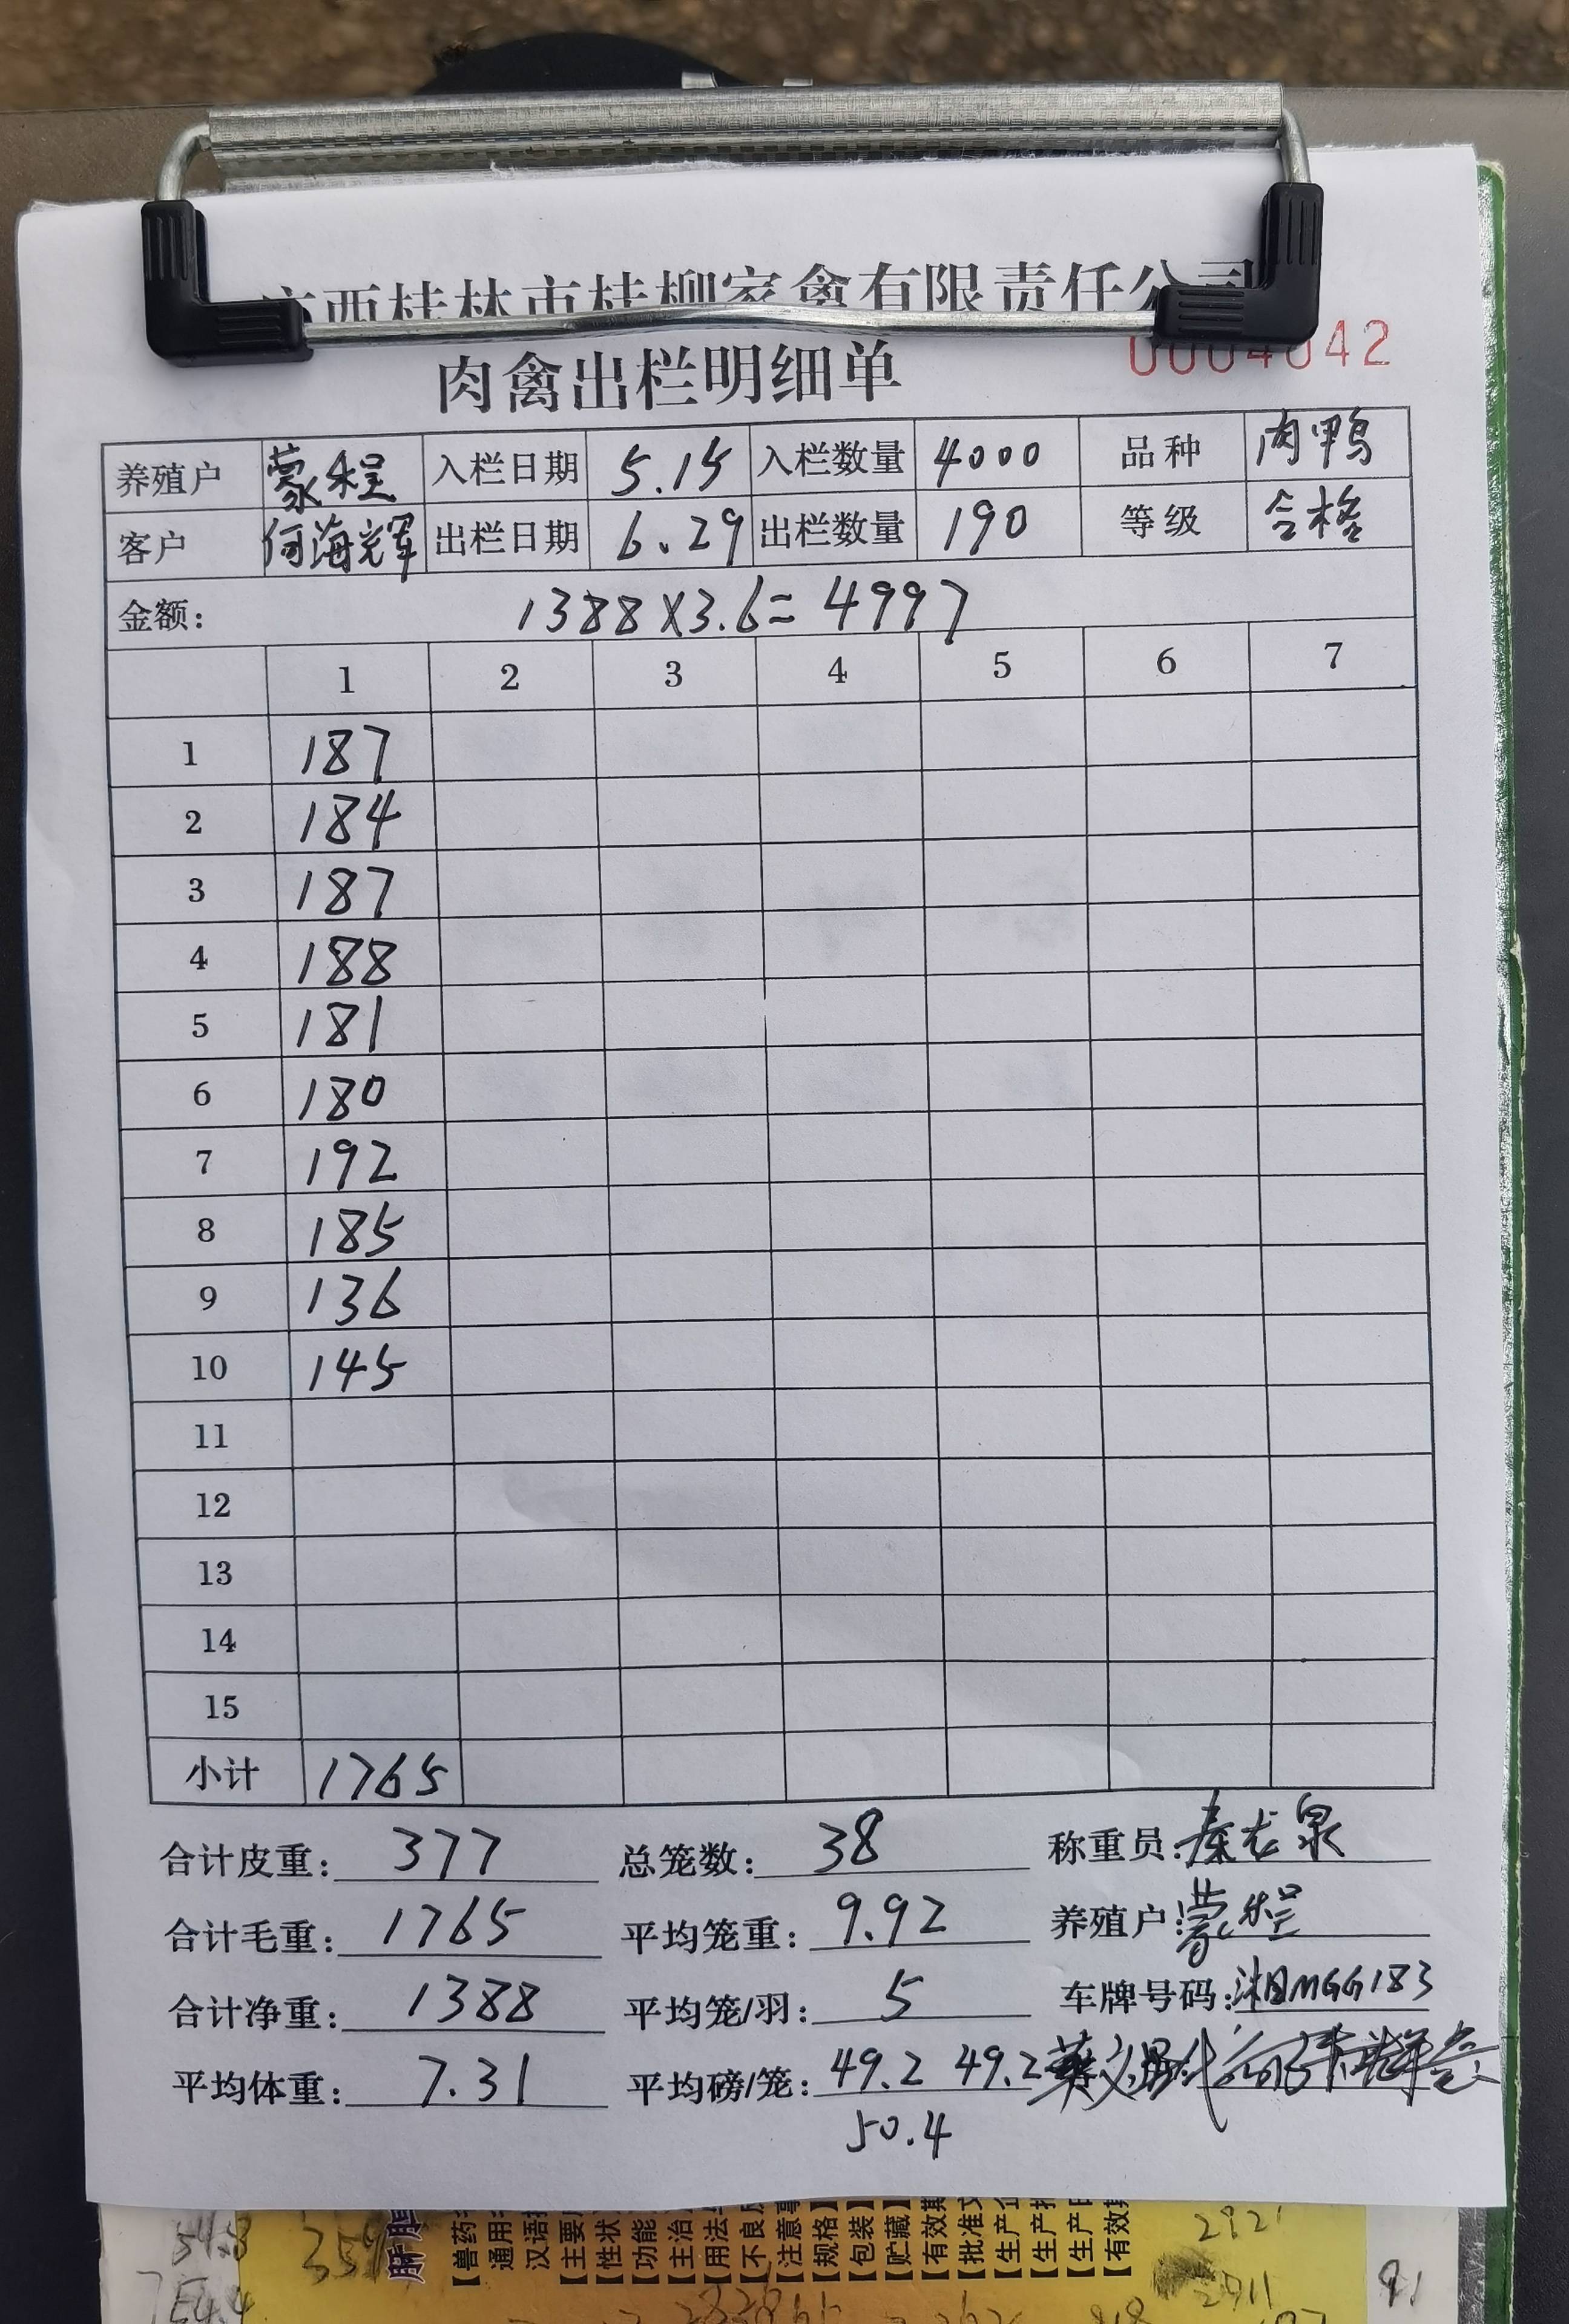 广西桂林市桂柳家禽有限责任公司
肉禽出栏明细单
0004042
养殖户 蒙程 入栏日期 5.15 入栏数量 4000 品种 肉鸭
客户 何海辉 出栏日期 6.29 出栏数量 190 等级 合格
金额: 1388X3.6=4997
1 2 3 4 5 6 7
1 187
2 184
3 187
4 188
5 181
6 180
7 192
8 185
9 136
10 145
11
12
13
14
15
小计 1765
合计皮重: 377 总笼数: 38 称重员: 秦龙泉
合计毛重: 1765 平均笼重: 9.92 养殖户: 蒙程
合计净重: 1388 平均笼/羽: 5 车牌号码: 湘MGG183
平均体重: 7.31 平均磅/笼: 49.2 49.2
50.4
肝胆
【兽药
通用
汉语
【主要
【性状
【功能
【主治
【用法
【不良
【注意
【规格】
【包装】
【贮藏】
【有效期
【批准文
【生产企
【生产
【生产
【有效
2911
91